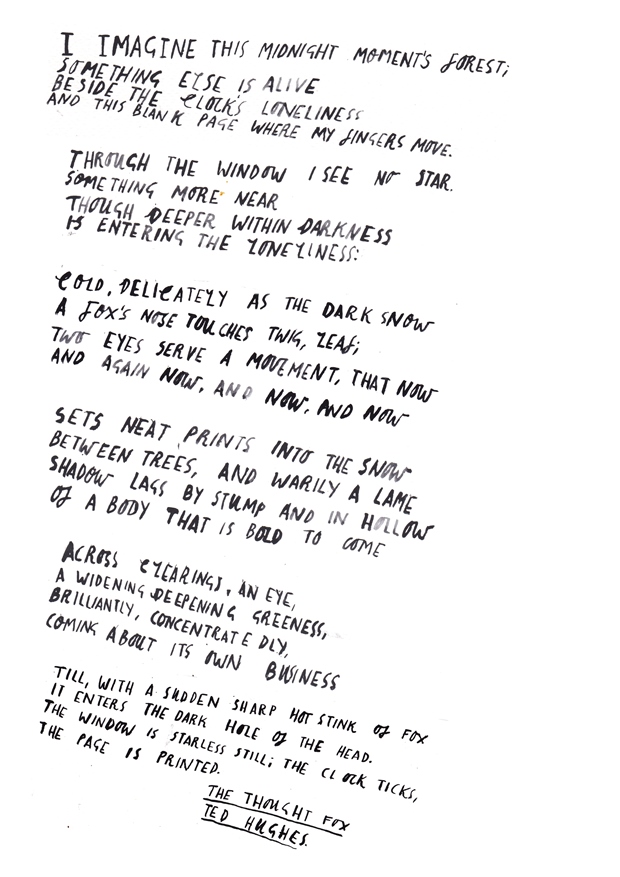 I IMAGINE THIS MIDNIGHT MOMENT'S FOREST;
SOMETHING ELSE IS ALIVE
BESIDE THE CLOCK'S LONELINESS
AND THIS BLANK PAGE WHERE MY FINGERS MOVE.
THROUGH THE WINDOW I SEE NO STAR.
SOMETHING MORE NEAR
THOUGH DEEPER WITHIN DARKNESS
IS ENTERING THE LONELINESS:
COLD, DELICATELY AS THE DARK SNOW
A FOX'S NOSE TOUCHES TWIG, LEAF;
TWO EYES SERVE A MOVEMENT, THAT NOW
AND AGAIN NOW, AND NOW, AND NOW
SETS NEAT PRINTS INTO THE SNOW
BETWEEN TREES, AND WARILY A LAME
SHADOW LAGS BY STUMP AND IN HOLLOW
OF A BODY THAT IS BOLD TO COME
ACROSS CLEARINGS, AN EYE,
A WIDENING DEEPENING GREENESS,
BRILLIANTLY, CONCENTRATEDLY,
COMING ABOUT ITS OWN BUSINESS
TILL, WITH A SUDDEN SHARP HOT STINK OF FOX
IT ENTERS THE DARK HOLE OF THE HEAD.
THE WINDOW IS STARLESS STILL; THE CLOCK TICKS,
THE PAGE IS PRINTED.
THE THOUGHT FOX
TED HUGHES.